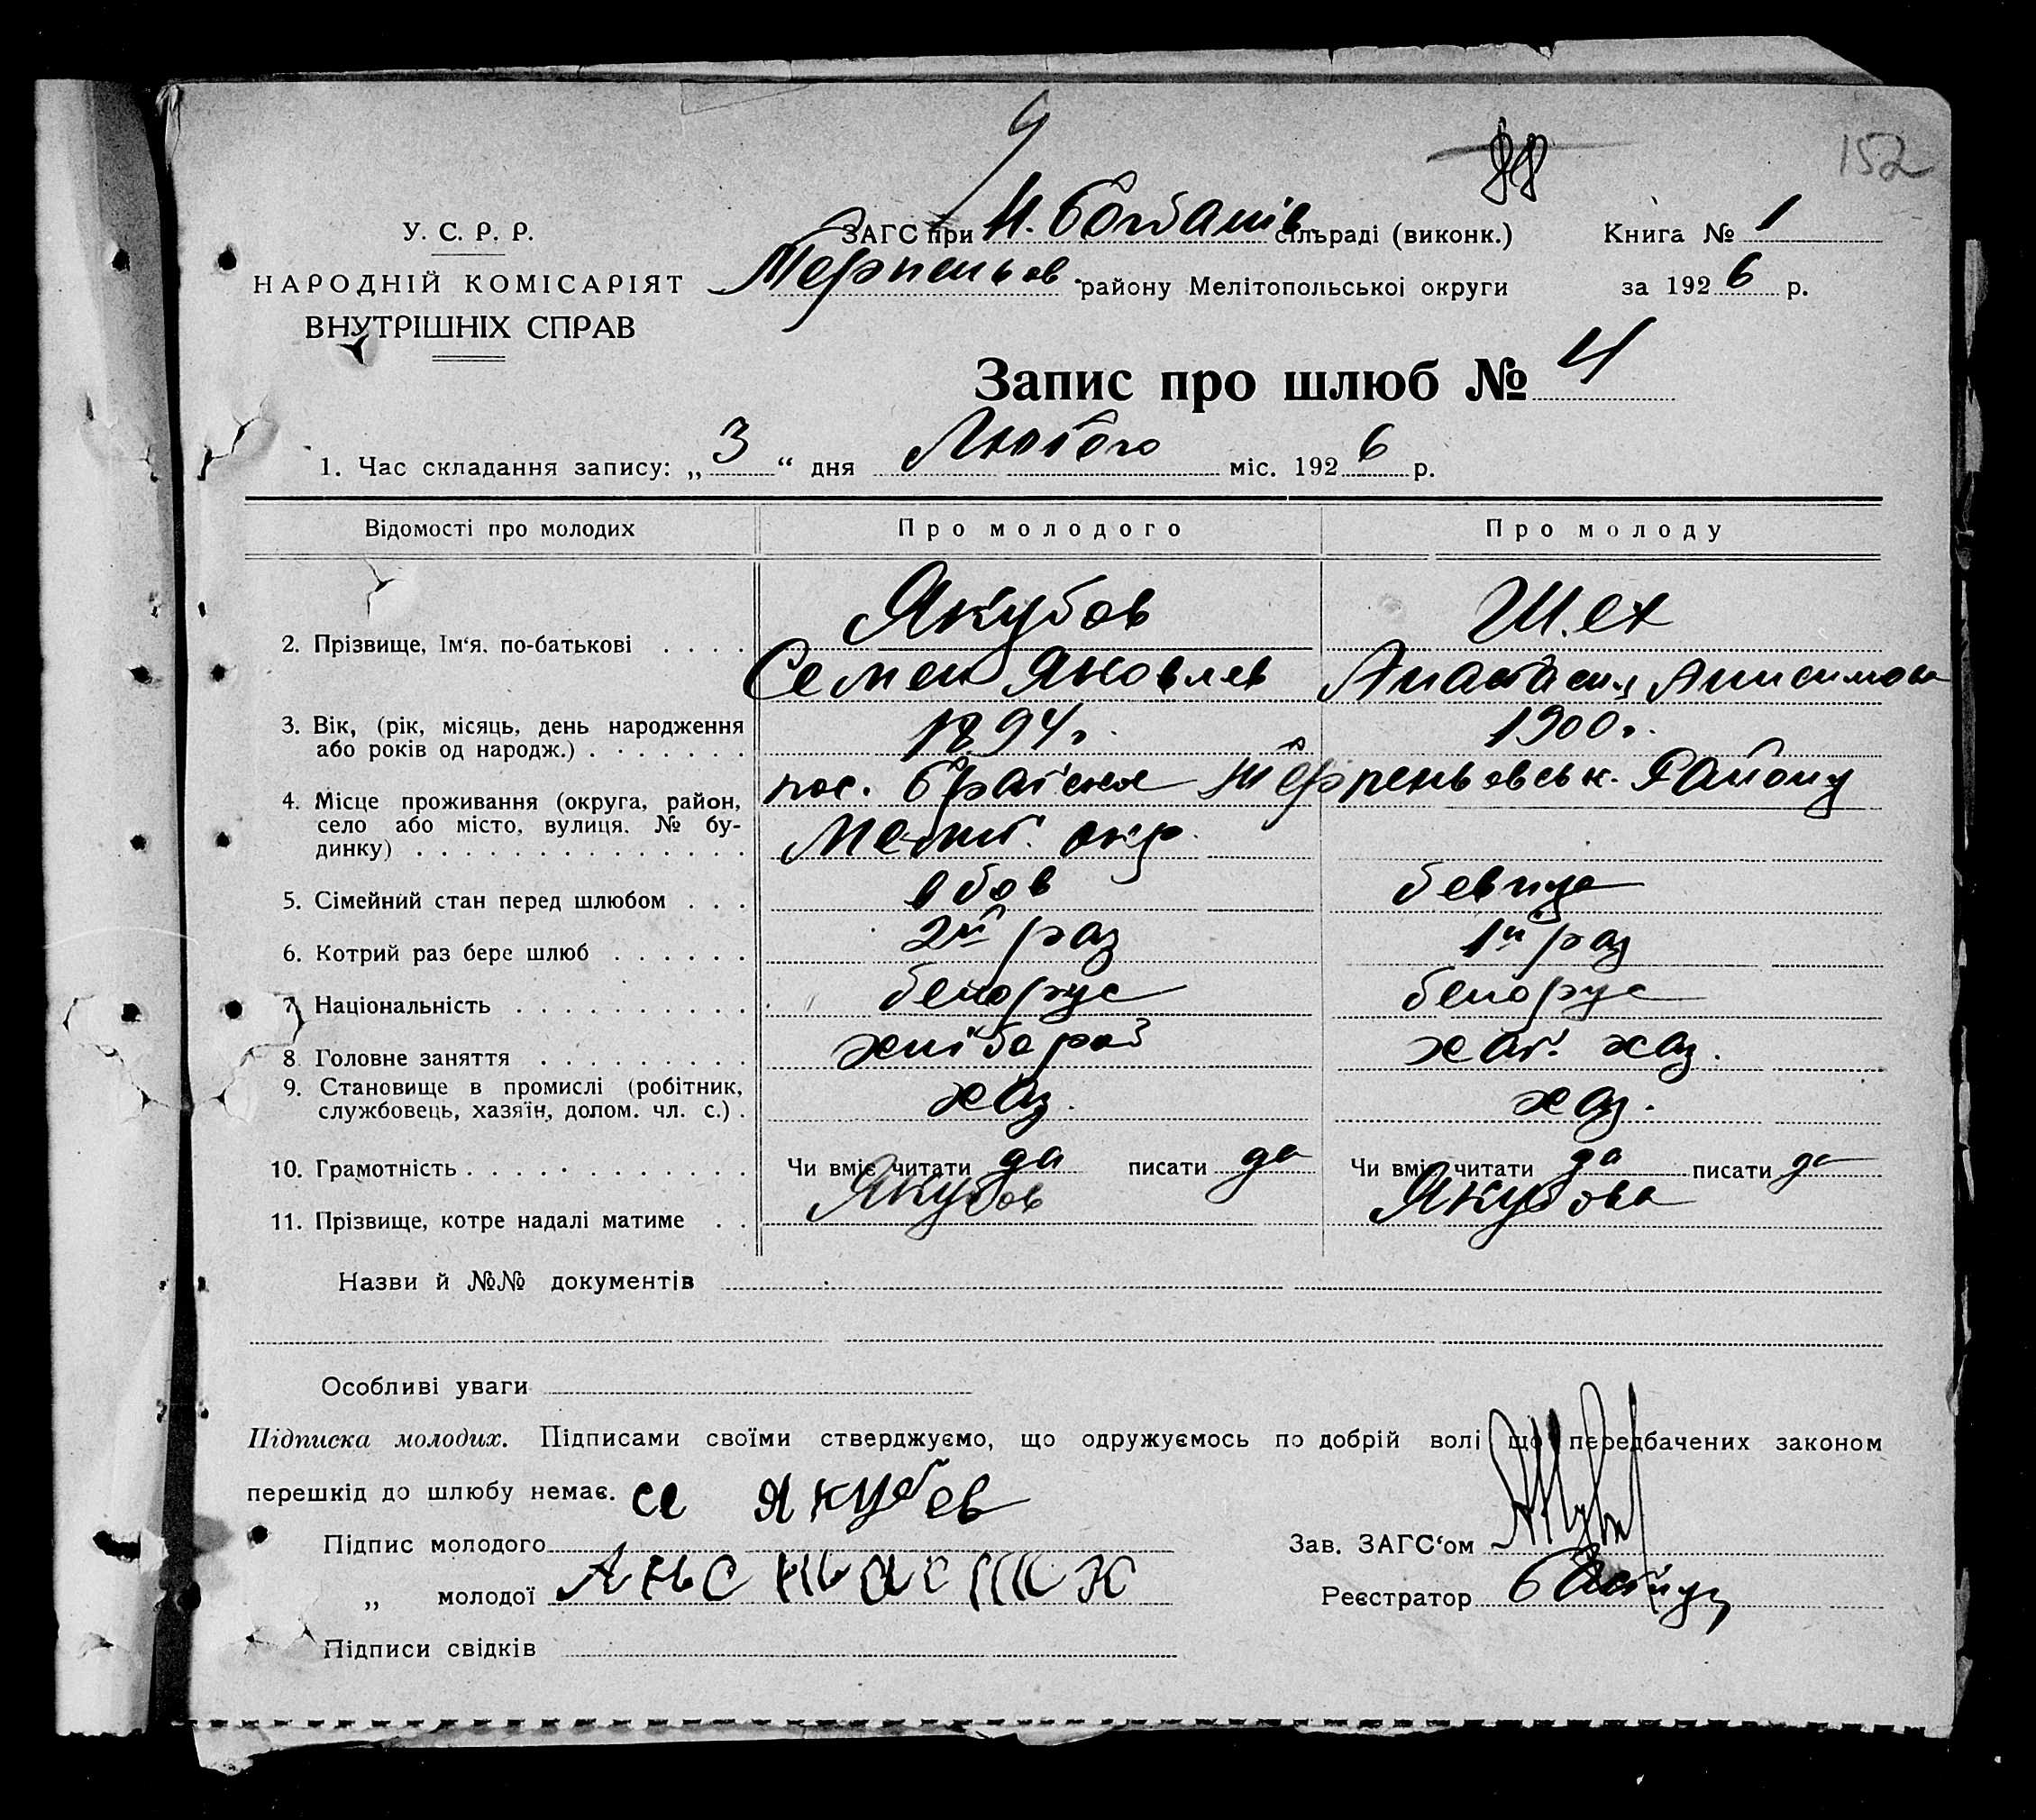 152
У. С. Р. Р.
НАРОДНІЙ КОМІСАРІЯТ
ВНУТРІШНІХ СПРАВ
ЗАГС при Н. Богданів. сільраді (виконк.)
Терпеньов. району Мелітопольської округи
Книга № 1
за 1926 р.
Запис про шлюб № 4
1. Час складання запису: „3“ дня Лютого міс. 1926 р.
Відомості про молодих Про молодого Про молоду
2. Прізвище, Ім‘я, по-батькові . . . . Якубов Шех
Семен Яковлев Анастасия Анисимова
3. Вік, (рік, місяць, день народження 1894г. 1900г.
або років од народж.) . . . . . . .
4. Місце проживання (округа, район, пос. Братское Терпеньовськ. Району
село або місто, вулиця, № бу-
динку) . . . . . . . . . . . . . . Меліт. окр.
5. Сімейний стан перед шлюбом . . . вдов девица
6. Котрий раз бере шлюб . . . . . . 2й раз 1й раз
7. Національність . . . . . . . . . . белорус белорус
8. Головне заняття . . . . . . . . . хлібороб хат. хаз.
9. Становище в промислі (робітник,
службовець, хазяїн, допом. чл. с.) . хаз. хаз.
10. Грамотність . . . . . . . . . . . . Чи вміє читати да писати да Чи вміє читати да писати да
11. Прізвище, котре надалі матиме . . Якубов Якубова
Назви й №№ документів
Особливі уваги
Підписка молодих. Підписами своїми стверджуємо, що одружуємось по добрій волі що передбачених законом
перешкід до шлюбу немає.
Підпис молодого Якубев
„ молодої
Зав. ЗАГС‘ом
Реєстратор
Підписи свідків